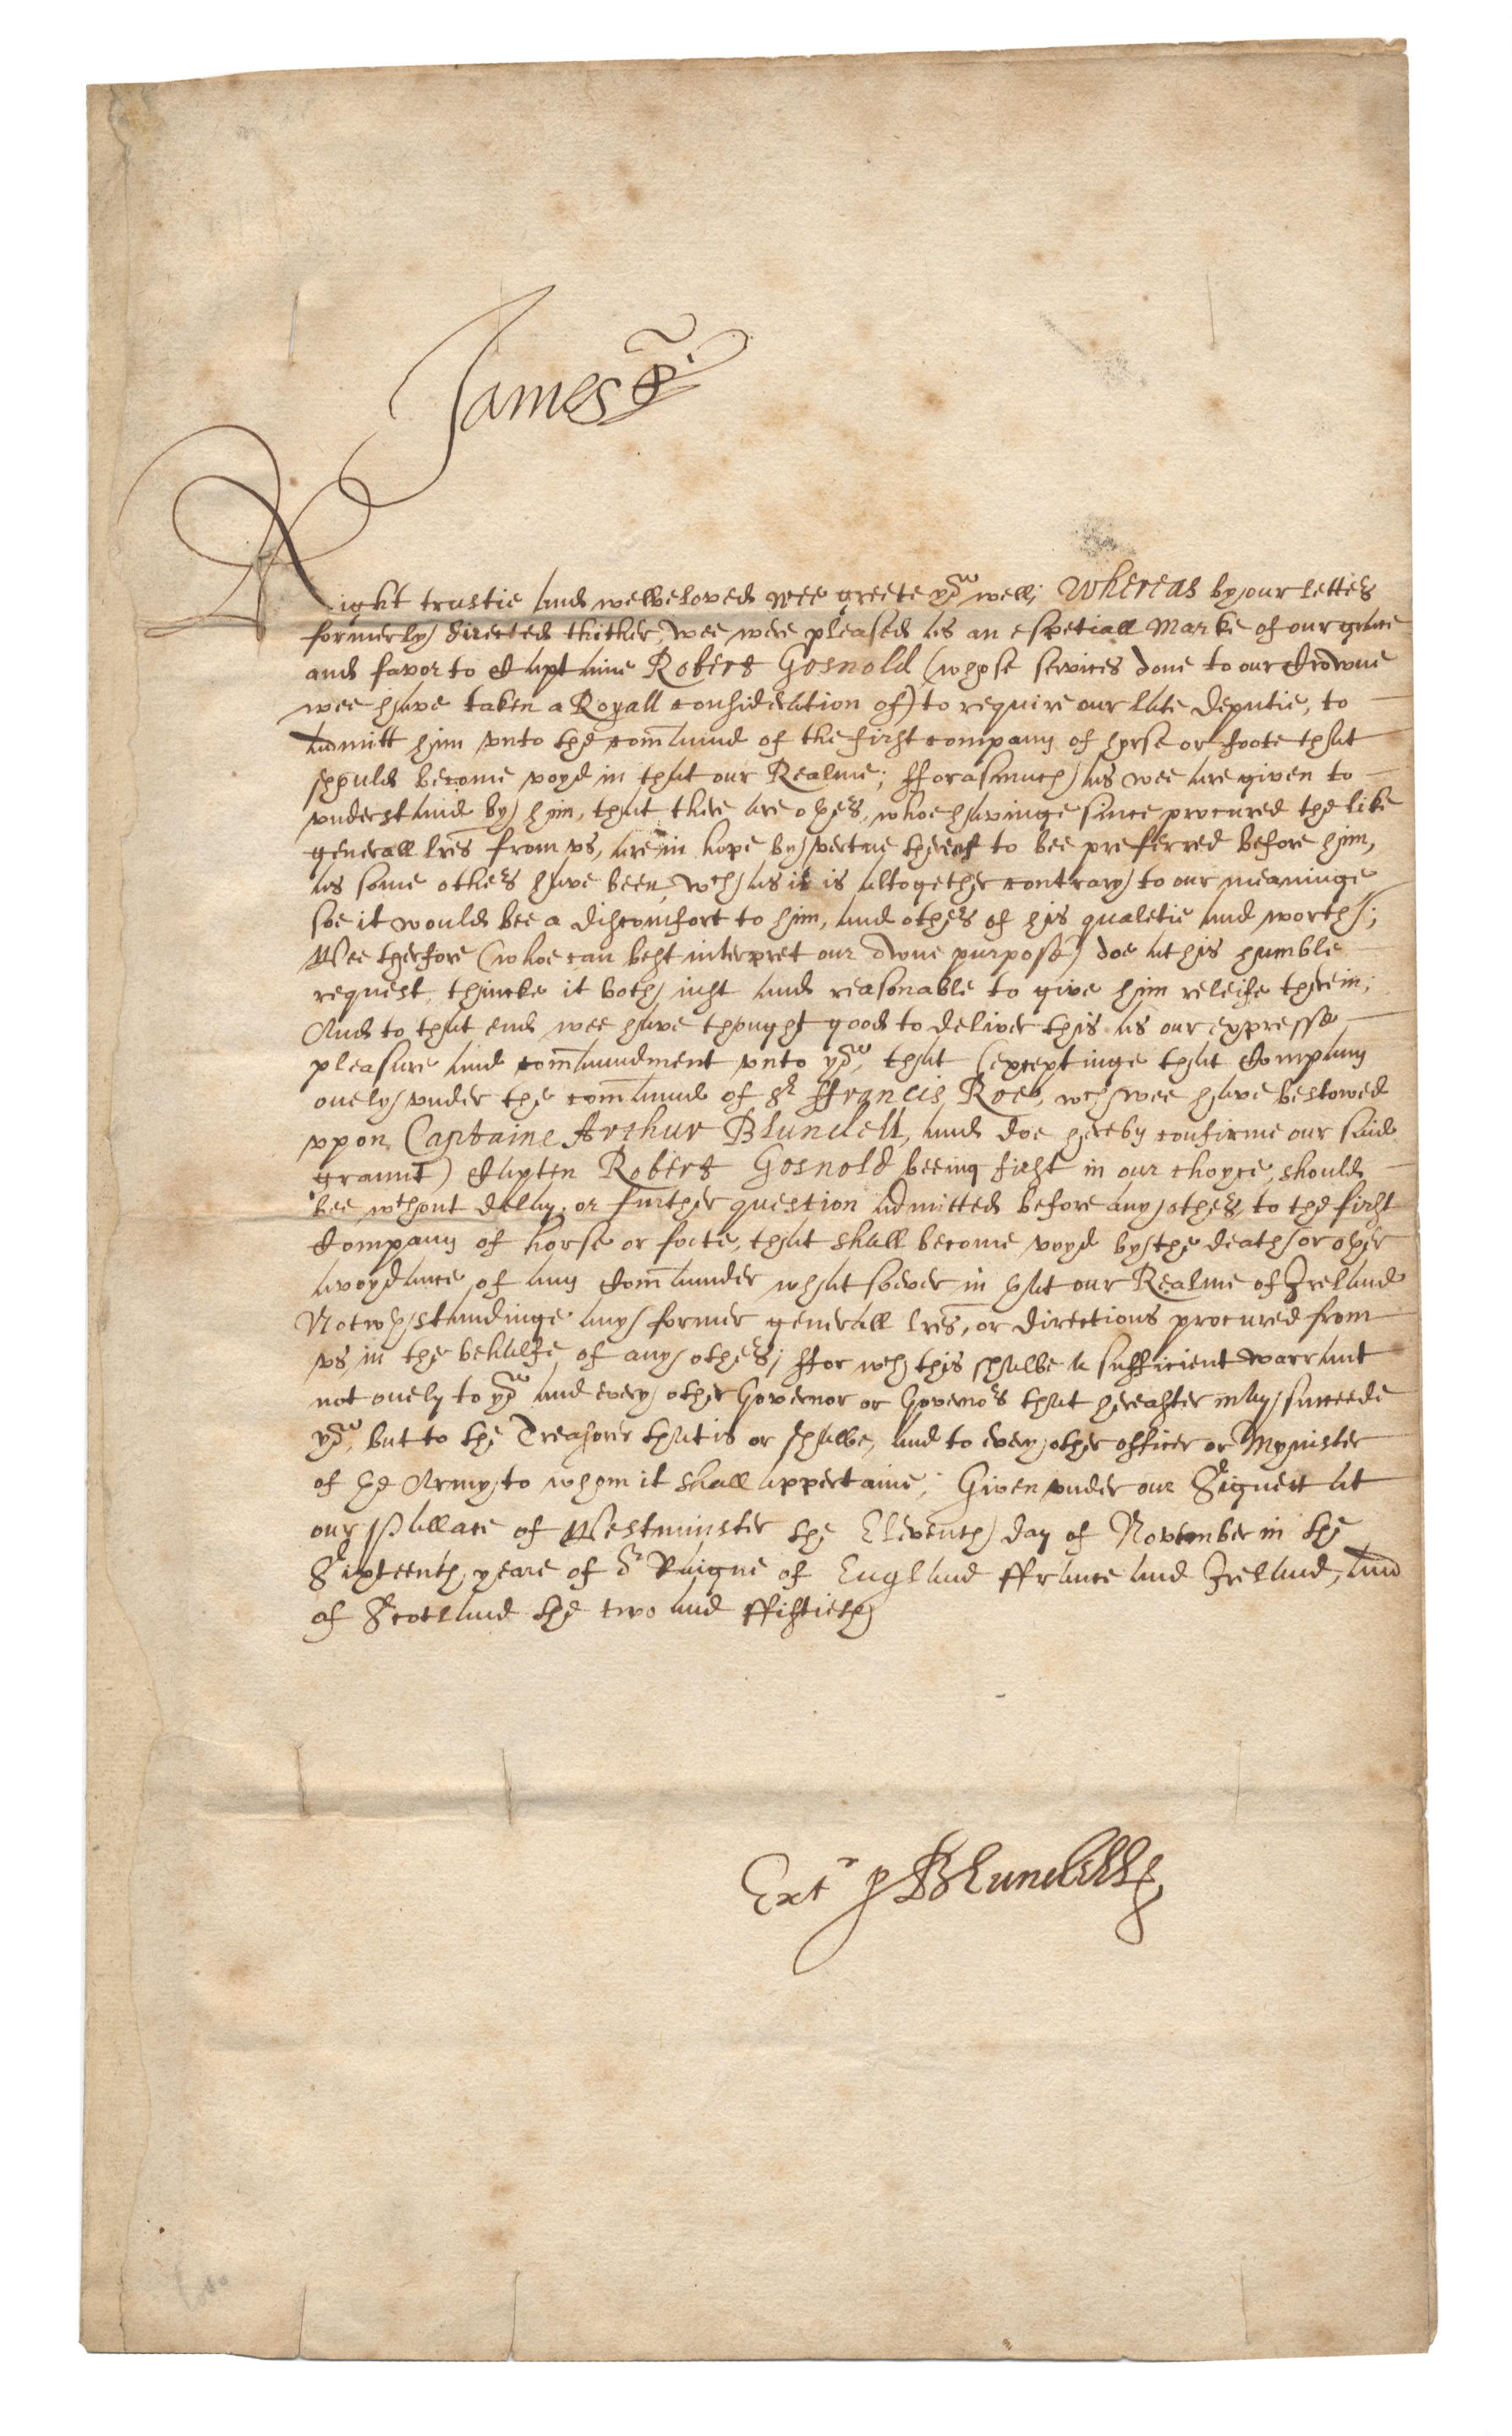 James R
Right trustie and welbeloved wee greete you well; Whereas by our letters
formerly directed thither, wee were pleased as an espetiall marke of our grace
and favor to Captaine Robert Gosnold (whose services done to our Crowne
wee have taken a Royall consideration of) to require our late Deputie, to
admitt him vnto the com̄aund of the first company of horse or foote that
should become voyd in that our Realme; fforasmuch as wee are given to
vnderstand by him, that there are others, whoe havinge since procured the like
generall lr̄es from vs, are in hope by vertue thereof to bee preferred before him,
as some others have been, wch as it is altogether contrary to our meaninge
soe it would bee a discomfort to him, and others of his qualetie and worth;
Wee therfore (whoe can best interpret our owne purpose) doe at his humble
request, thincke it both iust and reasonable to give him releife therein;
And to that end wee have thought good to deliver this as our expresse
pleasure and com̄aundment vnto you, that (exceptinge that Company
onely vnder the com̄aund of Sr ffrancis Roe, wch wee have bestowed
vpon Captaine Arthur Blundell, and doe hereby confirme our said
graunt) Capten Robert Gosnold beeing first in our choyce, should
bee wthout delay or further question admitted before any others to the first
Company of horse or foote, that shall become voyd by the death or other
avoydance of any Com̄aunder whatsoever in that our Realme of Ireland
Notwthstandinge any former generall lr̄es, or directions procured from
vs, in the behalfe of any others; ffor wch this shalbe a sufficient warrant
not onely to you and every other Governor or Governors that hereafter may succeede
you, but to the Treasorer that is or shalbe, and to every other officer or Mynister
of the Army to whom it shall appertaine; Given vnder our Signett at
our Pallace of Westminster the Eleventh day of November in the
Sixteenth yeare of or Raigne of England ffrance and Ireland, and
of Scotland the two and ffiftieth
Exr p Blundell